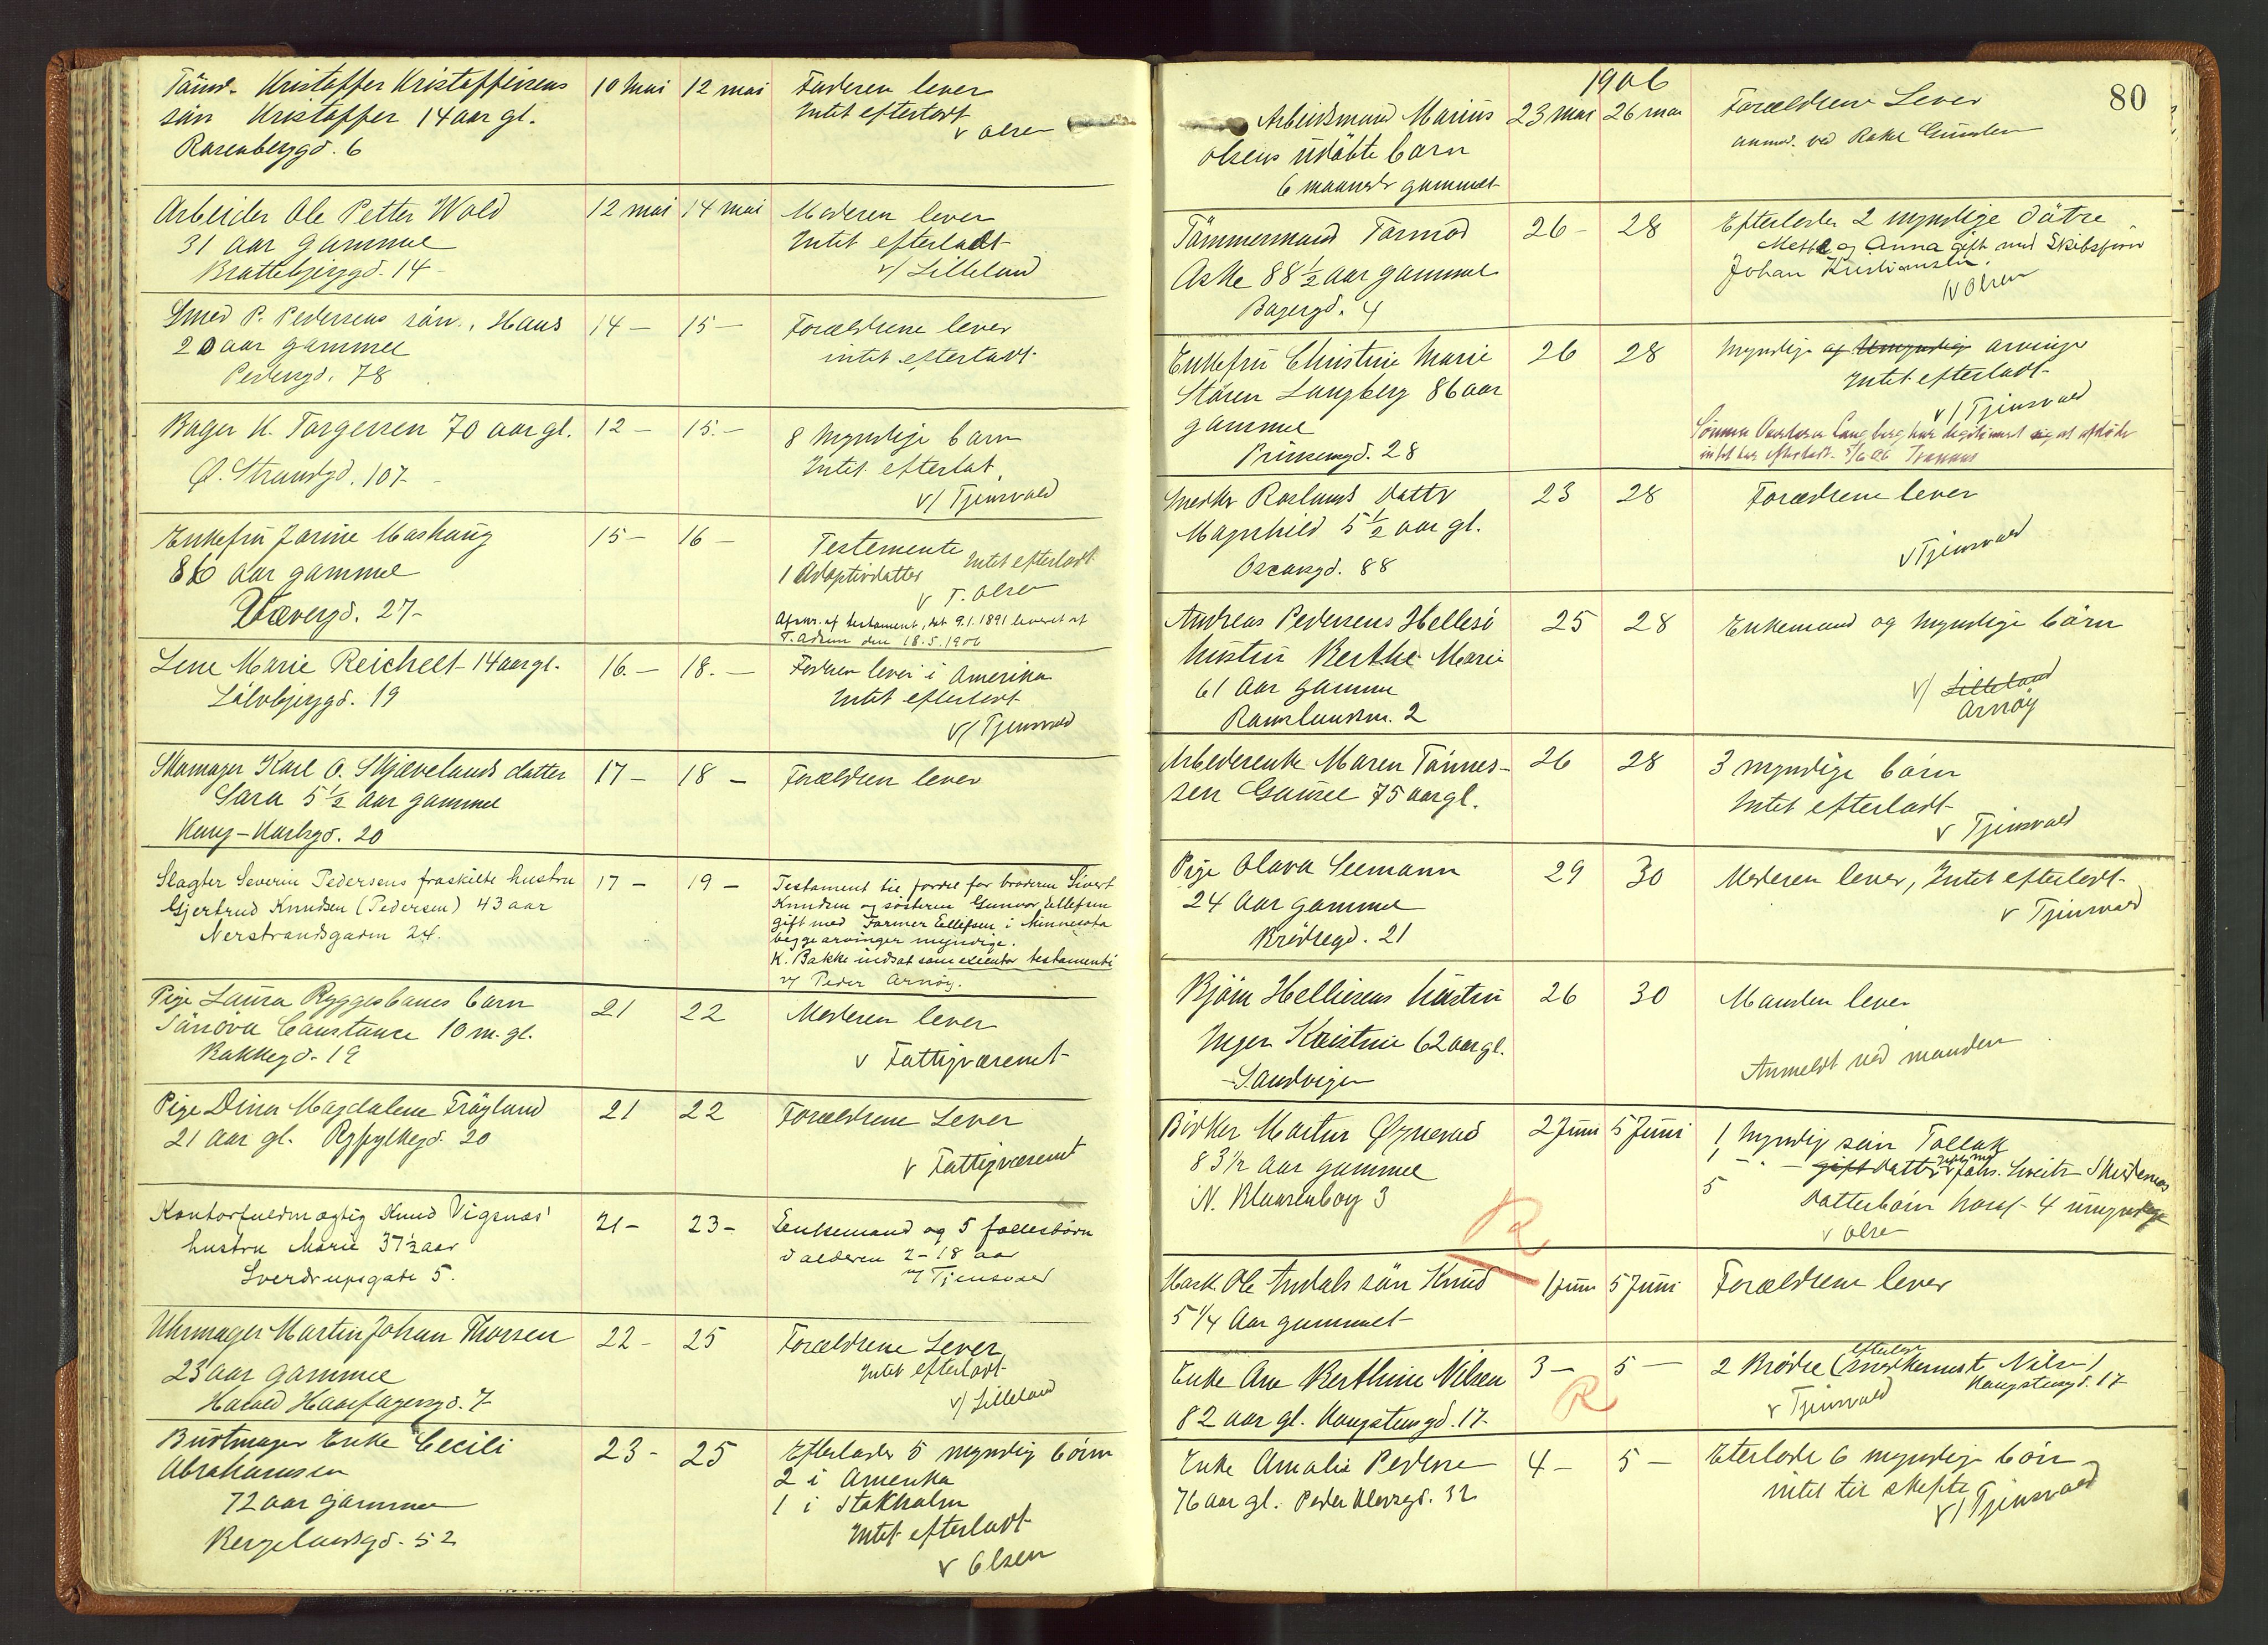 Tömd. Kristoffer Kristoffersens
sön Kristoffer 14 aar gl.
Rosenberggd. 6
10 Mai
12 mai
Faderen lever
Intet efterladt
v Olsen
Arbeider Ole Petter Wold
31 aar gammel
Brattebjerggd. 14
12 mai
14 mai
Moderen lever
Intet efterladt
v/ Lilleland
Smed P. Pedersens sön, Hans
20 aar gammel
Pedersgd. 78
14 –
15 –
Forældrene lever
intet efterladt
Bager K. Torgersen 70 aar gl.
Ø. Strandgd. 107
12 –
15. –
8 Myndige børn
Intet efterlat
v/ Tjensvold
Enkefru Jorine Maskaug
86 aar gammel
Vævergd. 27 –
15 –
16 –
Testemente
Intet efterladt
1 Adoptivdatter
v T. Olsen
Afskr. af testament, dat 9.1.1891 leveret af
den 18.5.1906
Lene Marie Reichelt 14 aar gl.
Sölvbjerggd. 19
16. –
18. –
Faderen lever i Amerika
Intet efterladt
v/ Tjensvold
Skomager Karl O. Skjævelands datter
Sara 5½ aar gammel
Kong-Karlsgd. 20
17 –
18 –
Forældren lever
Slagter Severin Pedersens fraskilte hustru
Gjertrud Knudsen (Pedersen) 43 aar
Nerstrandsgaden 24.
17 –
19 –
Testament til fordel for broderen Sivert
Knudsen og søsteren Gunvor Ellefsen
gift med Farmer Ellefsen i Minnesota
begge arvinger myndige.
K. Bakke indsat som executor testamenti
v/ Peder Arnöy.
Pige Laura Ryggesbanes barn
Sönöva Constance 10 m. gl.
Bakkegd. 19
21
22
Moderen lever
v Fattigvæsenet
Pige Dina Magdalene Fröylund
21 aar gl. Ryfylkegd. 20
21
22
Forældrene Lever
v Fattigvæsenet
Kontorfuldmægtig Knud Vigsnæs'
hustru Marie 37½ aar
Sverdrupsgate 5.
21 –
23 –
Enkemand og 5 fællesbørn
i alderen 2 – 18 aar
v/ Tjensvold
Uhrmager Martin Johan Thorsen
23 aar gammel
Harald Haarfagersgd. 7
22 –
25
Forældrene Lever
Intet efterladt
v/ Lilleland
Buntmager Enke Cecili
Abrahamsen
72 aar gammel
Bergelandsgd. 52
23 –
25
Efterlader 5 myndig börn
2 i Amerika
1 i Stokholm
Intet efterladt
v Olsen
1906
80
Arbeidsmand Marius
Olsens udöbte barn
6 maaneder gammel
23 mai
26 mai
Forældrene Lever
anm. ved Rakel Gundersen
Tömmermand Tormod
Aske 88½ aar gammel
Bagergd. 4
26 –
28
Efterlader 2 myndige døtre
Mette og Anna gift med Skibsförer
Johan Kristiansen.
v Olsen
Enkefru Christine Marie
Stören Langberg 86 aar
gammel
Prinsensgd. 28
26
28
Myndige og Umyndig arvinge
Intet efterladt
v/ Tjensvold
Sönnen Langberg har legitimeret sig at afdöde
intet har efterladt 5/6 06
Snedker Roslands datter
Magnhild 5½ aar gl.
Oscarsgd. 88
23
28
Forældrene lever
v Tjensvold
Andreas Pedersens Hellesö
hustru Berthe Marie
61 aar gammel
Ramslandsm. 2
25
28
Enkemand og myndige börn
v/ Lilleland
Arnöy
Arbeiderenke Maren Tönnes-
sen Gausel 75 aar gl.
26
28
3 myndige börn
Intet efterladt
v Tjensvold
Pige Olava Seemann
24 aar gammel
Bredregd. 21
29
30
Moderen lever, Intet efterladt
v Tjensvold
Björn Helliesens hustru
Inger Kristine 62 aar gl.
Sandvigen
26
30
Manden lever
Anmeldt ved manden
Bödker Martin Øgnerud
83½ aar gammel
N. Blaasenborg 3
2 Juni
5 Juni
1 Myndig sön Tollak
1 – " – gift datter gift med Johs.
5 Datterbörn hvoraf 4 umyndige
v Olsen
R
Mask. Ole Andals sön Knud
5¼ aar gammel
1 Juni
5 Juni
Forældrene lever
Enke Ane Berthine Nilsen
82 aar gl. Kongstensgd. 17
3 –
5 –
2 Brödre (efterlade Nilsen)
Kongstensgd. 17
v Tjensvold
R
Enke Amalie Pedersen
76 aar gl. Peder Klowsgd. 32
4 –
5 –
Eterlade 6 myndige börn
intet til skifte
v/ Tjensvold